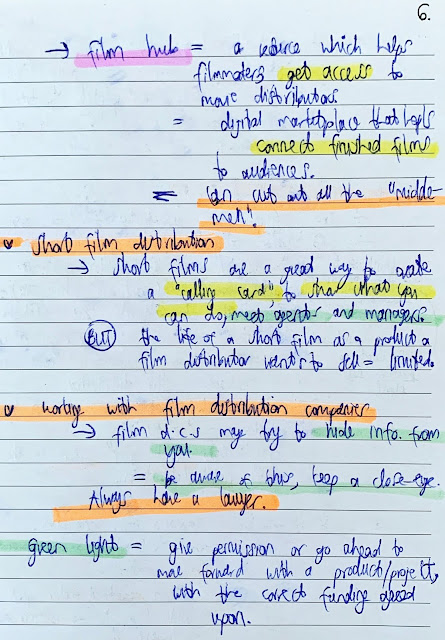 6.
→ film hub = a resource which helps
filmmakers get access to
movie distributors
= digital marketplace that helps
connect finished films
to audiences.
= can cut out all the "middle
men".
• short film distribution
→ short films are a great way to create
a "calling card" to show what you
can do, meet agents and managers.
BUT the life of a short film as a product a
film distributor wants to sell = limited.
• working with film distribution companies
→ film d.c.s may try to hide info. from
you.
= be aware of this, keep a close-eye.
Always have a lawyer.
Green light = give permission or go ahead to
move forward with a product/project,
with the correct funding agreed
upon.